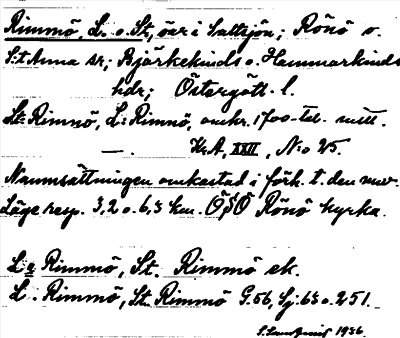 Rimmö, L. o. St., öar i Saltsjön; Rönö o.
S:t Anna sn; Björkekinds o. Hammarkinds
hdr; Östergötl. l.
St: Rimnö, L: Rimnö, omkr. 1700-tal. mitt.
—. Kr.A, XXII, No 25.
Namnsättningen omkastad i förh. t. den nuv.
Läge resp. 3,2 o. 6,3 km. ÖSÖ Rönö kyrka.
L:a Rimmö, St. Rimmö ek.
L. Rimmö, St. Rimmö G.56, Sj: 63 o. 251.
1936.